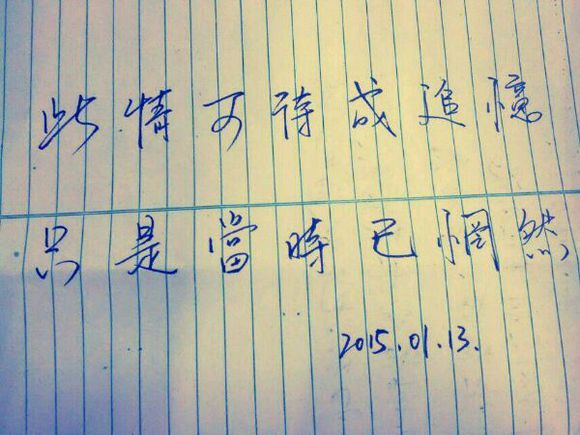 此情可待成追憶
只是當時已惘然
2015.01.13.